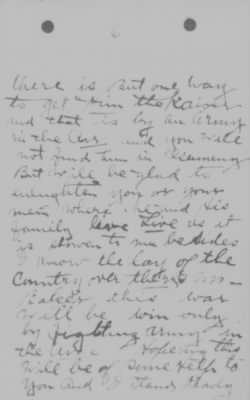 6
there is But one way
to get him the Kaiser
and that is by an army
in the air and you will
not find him in Germany
But will be glad to
enlighten you or your
men where he and His
family Live as it
is shown to me besides
I know the lay of the
Country over there
this war
will be won only
by fighting army in
the air - Hoping this
will be of some Help to
you and I Stand Ready